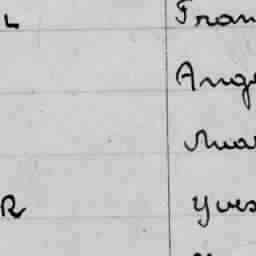 L Fran
Ange
Mar
R Yves